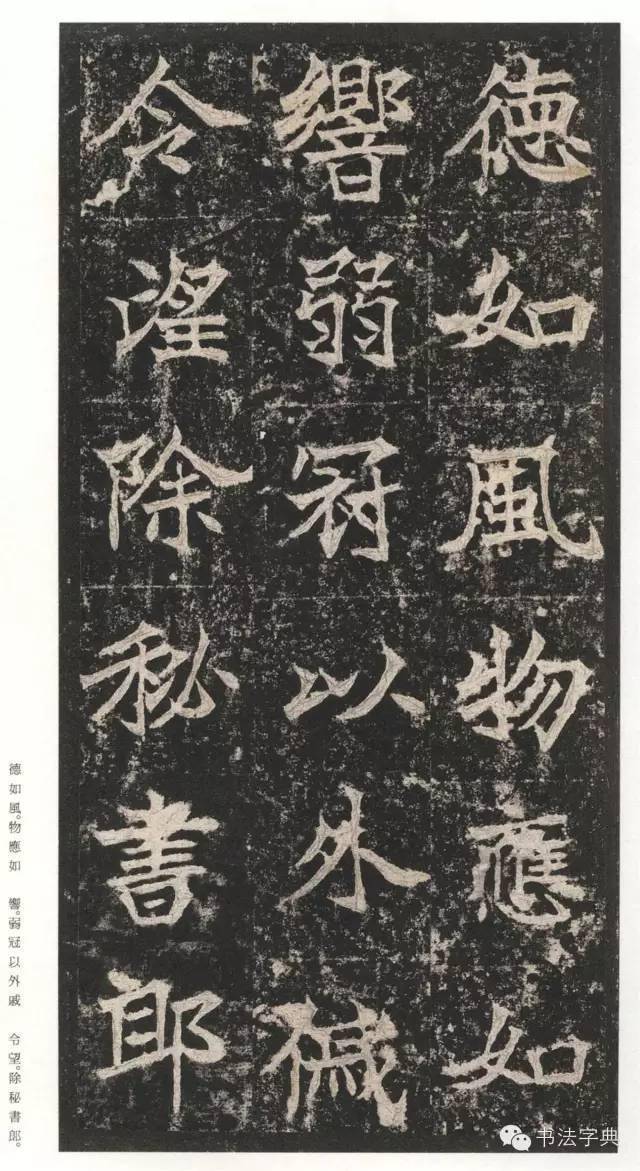 德如風物應如
響弱冠以外戚
令望除秘書郎
德如風。物應如 響。弱冠以外戚 令望。除秘書郎。
书法字典